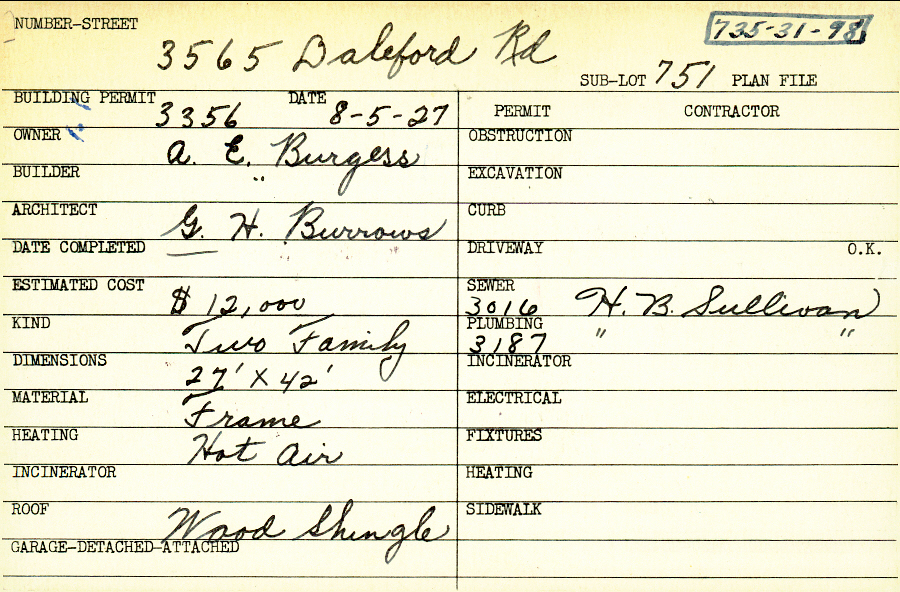 NUMBER-STREET 735-31-98
3565 Daleford Rd
SUB-LOT 751 PLAN FILE
BUILDING PERMIT 3356 DATE 8-5-27
PERMIT CONTRACTOR
OWNER A. E. Burgess
OBSTRUCTION
BUILDER "
EXCAVATION
ARCHITECT G. H. Burrows
CURB
DATE COMPLETED —
DRIVEWAY O.K.
ESTIMATED COST $12,000
SEWER 3016 H. B. Sullivan
KIND Two Family
PLUMBING 3187 " "
DIMENSIONS 27' X 42'
INCINERATOR
MATERIAL Frame
ELECTRICAL
HEATING Hot Air
FIXTURES
INCINERATOR
HEATING
ROOF Wood Shingle
SIDEWALK
GARAGE-DETACHED-ATTACHED